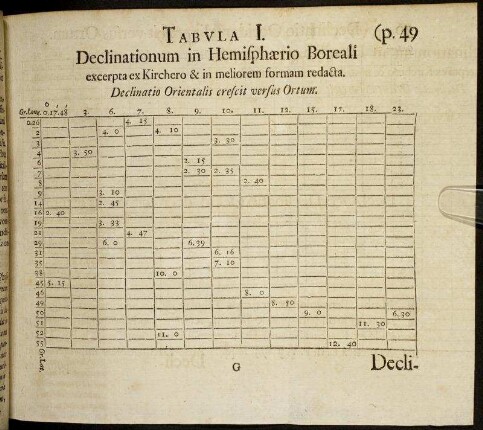 TABVLA I. (p. 49
Declinationum in Hemisphærio Boreali
excerpta ex Kirchero & in meliorem formam redacta.
Declinatio Orientalis crescit versus Ortum.
Gr. 0.17.48 3. 6. 7. 8. 9. 10. 11. 12. 15. 17. 18. 23.
4. 15
2 4. 0 4. 10
3 3. 30
4 3. 50
6 2. 15
7 2. 30 2. 35
8 2. 40
9 3. 10
14 2. 45
16 2. 40
19 3. 33
21 4. 47
29 6. 0 6.39
31 6. 16
35 7. 10
38 10. 0
45 5. 15
46 8. 0
49
50 9. 0 6.30
51 11. 30
52 11. 0
55 12. 40
Gr. Lat.
G Decli-